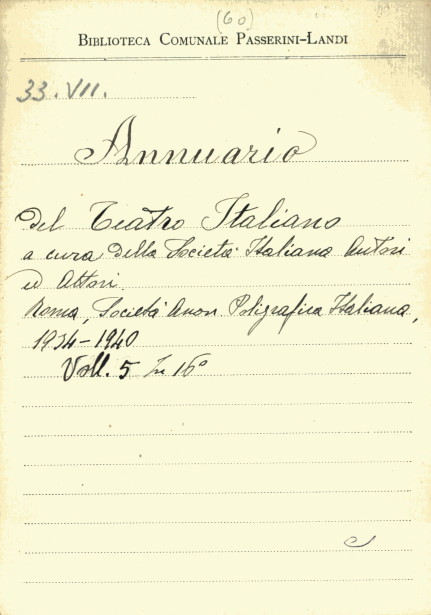 (60)
BIBLIOTECA COMUNALE PASSERINI-LANDI
33.VII.
Annuario
del Teatro Italiano
a cura della Società Italiana Autori
ed Attori.
Roma, Società Anon. Poligrafica Italiana,
1934-1940
Voll. 5 In 16°